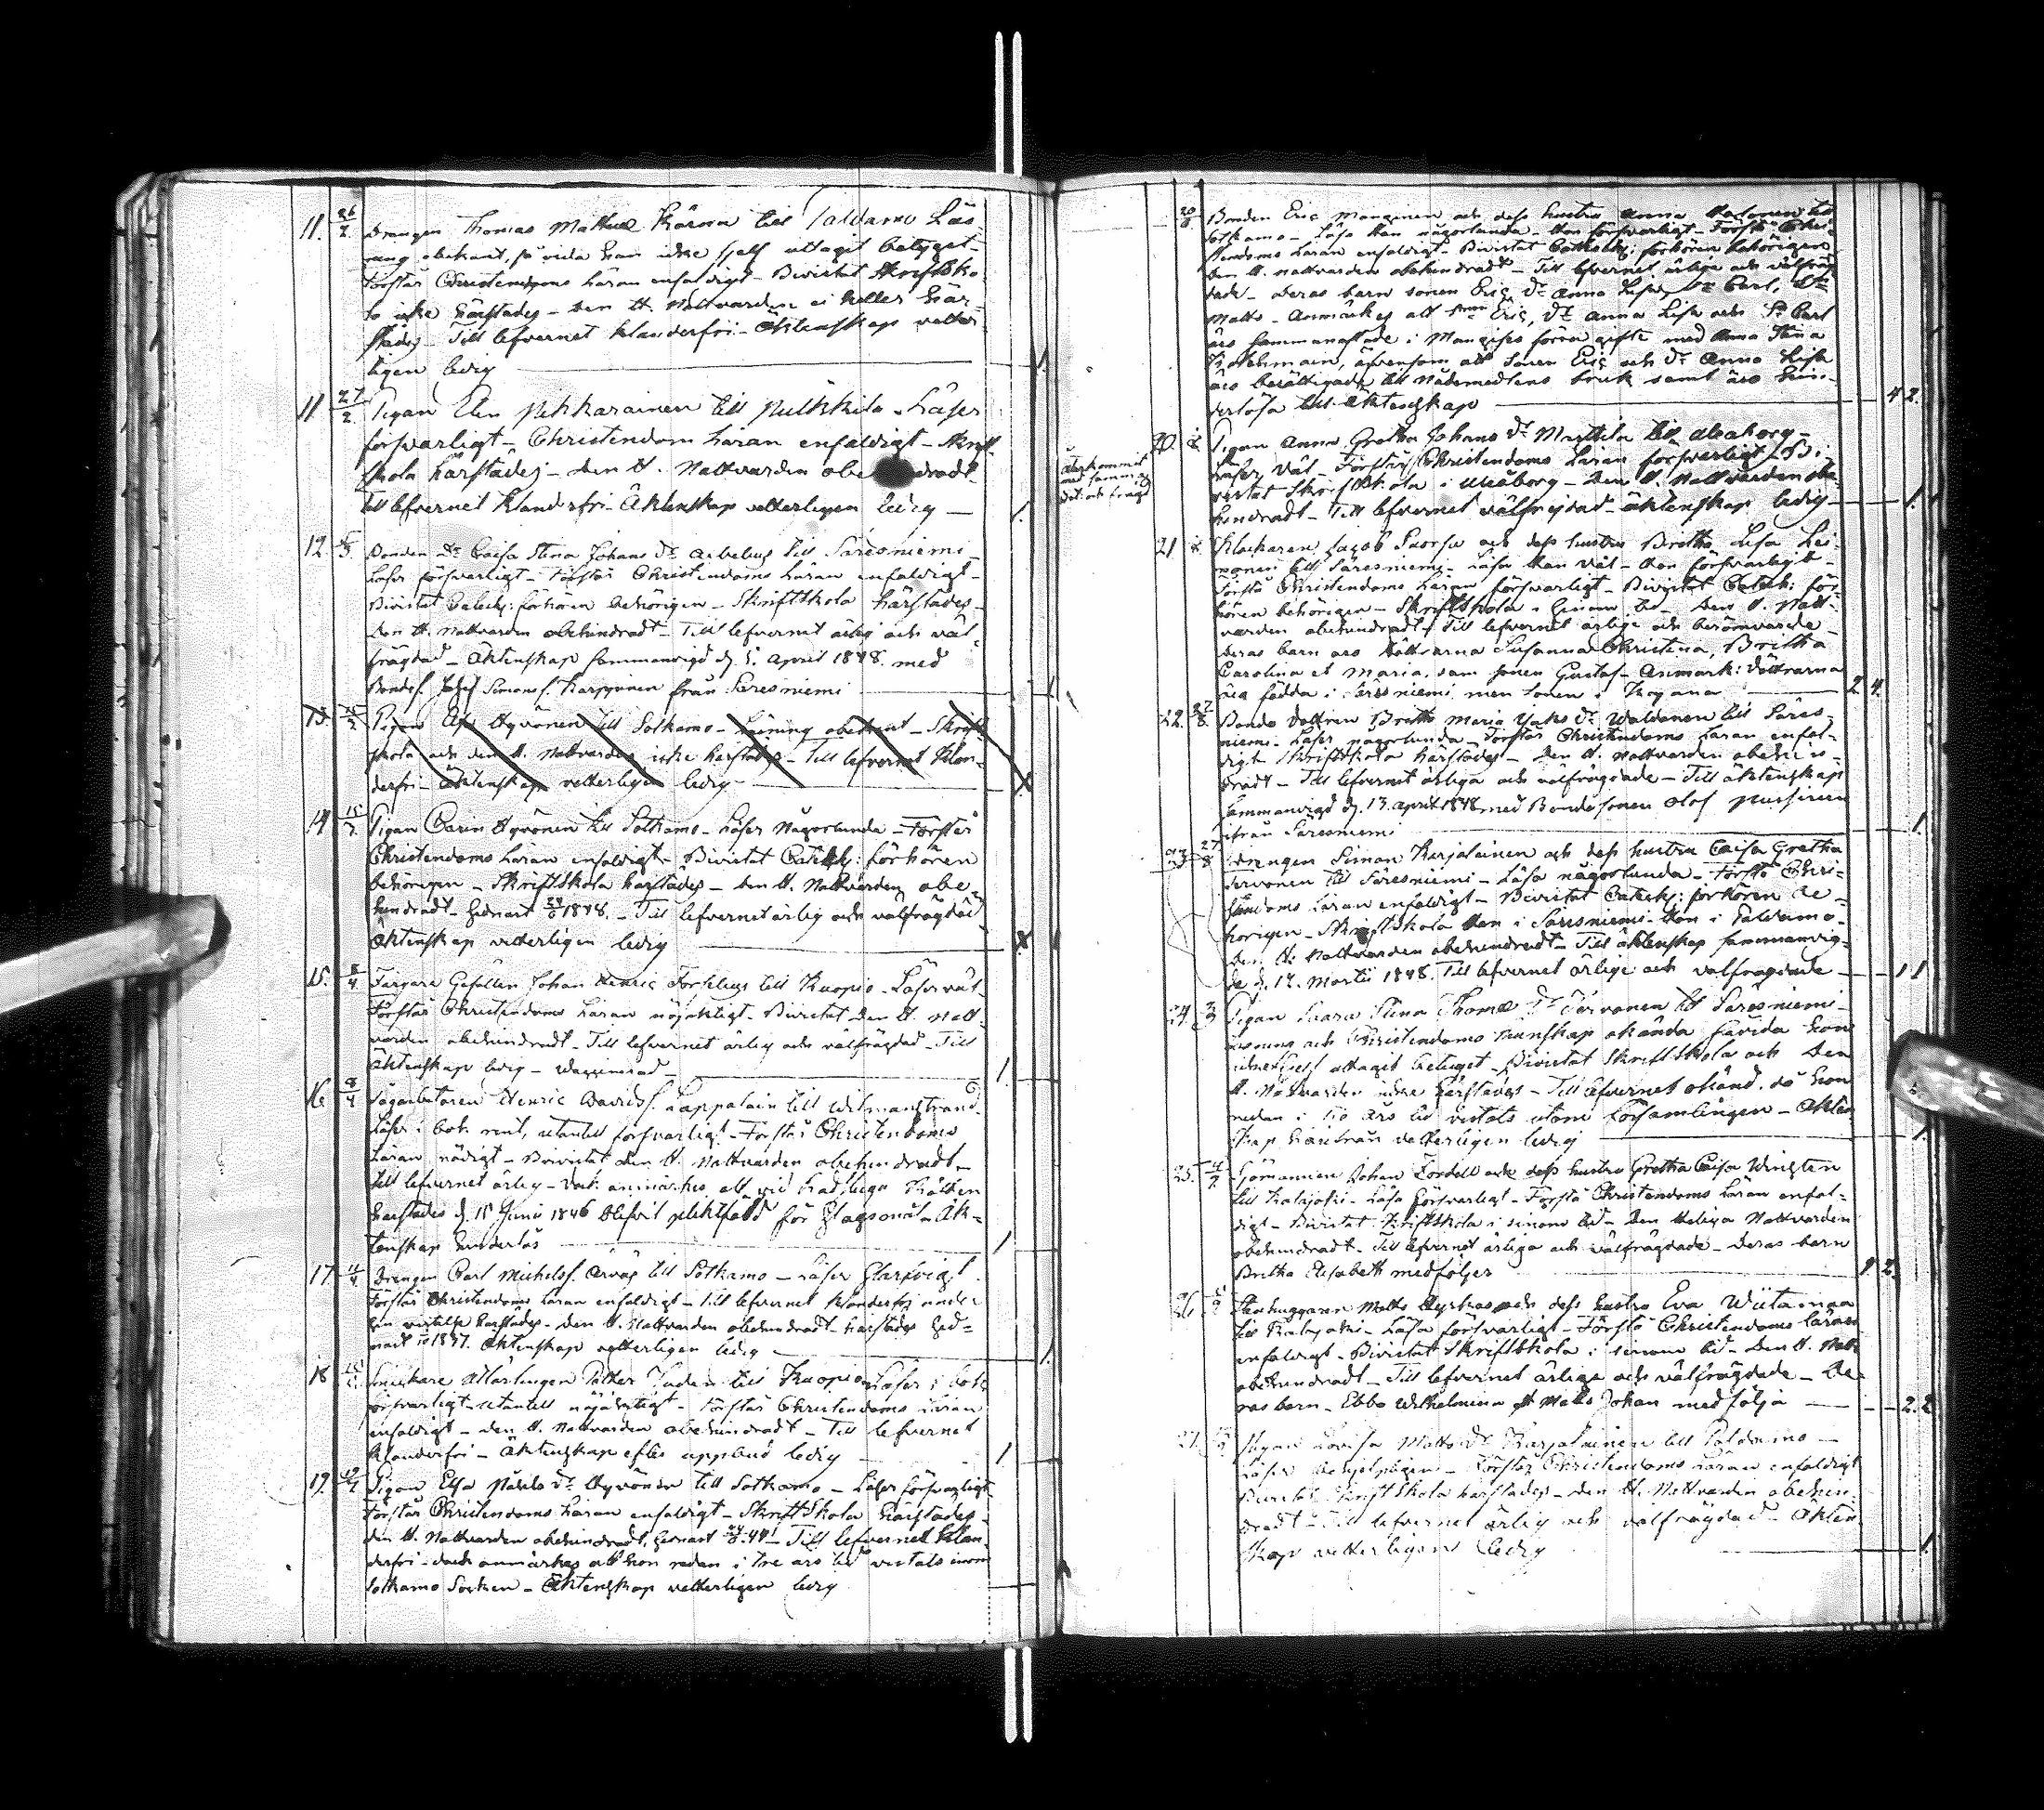 11. 26/2 Drengen Thomas Matthiæ Kärnä till Paldamo Läs-
ning obekant, så vida han icke sjelf uttagit betyget-
Förstår Christendoms Läran enfaldigt - Bivistat Skriftsko-
la icke härstädes - Den H. Nattvarden ei heller här-
städes - Till lefvernet klanderfri - Äktenskap veter-
ligen ledig 1.
11 27/2 Pigan Elin Pekkarainen till Pulkkila - Läser
försvarligt - Christendoms Läran enfaldigt - Skrift-
skola härstädes - Den H. Nattvarden obehindradt.
Till lefvernet klanderfri - Äktenskap vetterligen ledig 1.
12. Bonden Dr Caisa Stina Johans Dr Arbelius till Säresniemi
Läser försvarligt - Förstår Christendoms Läran enfaldigt -
Bivistat Catech: förhören behörigen - Skriftskola härstädes -
Den H. Nattvarden obehindradt - Till lefvernet ärlig och väl-
frägdad - Äktenskap sammanvigd d. 5. April 1848. med
Bondes. Josef Simons s. Karppinen från Säresniemi 1
13. Pigan Hyvönen till Sotkamo - Läsning obekant - Skrift-
skola och den H. Nattvarden icke härstädes - Till lefvernet klan-
derfri - Äktenskap vetterligen ledig
14 15/3 Pigan Carin Hyvönen till Sotkamo - Läser någorlunda - Förstår
Christendoms Läran enfaldigt - Bivistat Catech: förhören
behörigen - Skriftskola härstädes - Den H. Nattvarden obe-
hindradt - Till lefvernet ärlig och välfrägdad
Äktenskap vetterligen ledig
15. 8/4 Färgare Gesällen Johan Henric Forselius till Kuopio - Läser väl -
Förstår Christendoms Läran nöjaktigt - Bivistat Den H. Natt-
varden obehindradt - Till lefvernet ärlig och välfrägdad - Till
Äktenskap ledig - Vaccinerad 1.
16 8/4 Sågarbetaren Henric Davids s. Lappalain till Wilmanstrand.
Läser i bok rent, utantill försvarligt - Förstår Christendoms
Läran nödigt - Bivistat Den H. Nattvarden obehindradt -
Till lefvernet ärlig - Dock anmärkes att vid Rätten
härstädes d. 15 Junii 1846 blifvit pliktfäld för slagsmål. Äk-
tenskap hinderlös 1
17 Drengen Carl Michels s. Arvas till Sotkamo - Läser
Förstår Christendoms Läran enfaldigt - Till lefvernet klanderfri under
sin vistelse härstädes - Den H. Nattvarden obehindradt härstädes
1847. Äktenskap vetterligen ledig 1.
18 Snickare Lärlingen Petter till Kuopio Läser i bok
försvarligt - Utantill nöjaktigt - Förstår Christendoms Läran
enfaldigt - Den H. Nattvarden obehindradt - Till lefvernet
klanderfri - Äktenskap efter uppbud ledig 1
19. Pigan Elsa Påhls Dr Hyvönen till Sotkamo - Läser försvarligt
Förstår Christendoms Läran enfaldigt - Skriftskola härstädes -
Den H. Nattvarden obehindradt, - Till lefvernet klan-
derfri - dock anmärkes att hon redan i tre års tid vistats inom
Sotkamo Socken - Äktenskap vetterligen ledig
Bonden Eric Manginen och dess hustru Anna till
Sotkamo - Läsa Han någorlunda - Hon försvarligt - Förstå Chri-
stendoms Läran enfaldigt - Bivistat Catech: förhören behörigen
Den H. Nattvarden obehindradt - Till lefvernet ärliga och välfräg-
dade - Deras barn sonen Eric, Dr Anna Lisa, Sr Carl, Sr
Matts - Anmärkes att Sonen Eric, Dr Anna Lisa och Sr Carl
äro sammanaflade i Manginens förra gifte med Anna Stina
äfvensom att Sonen Eric och Dr Anna Lisa
äro berättigade till Nådemedlens bruk samt äro hin-
derlösa till Äktenskap 4 2.
Återkommit
med samma
20. Pigan Anna Gretha Johans Dr Marttila till Uleåborg -
Läser väl - Förstår Christendoms Läran försvarligt - Bi-
vistat Skriftskola i Uleåborg - Den H. Nattvarden obe-
hindradt - Till lefvernet välfrejdad - Äktenskap ledig 1.
21. Klockaren Jacob Suorsa och dess hustru Britha Lisa
till Säresniemi - Läsa Han väl - Hon försvarligt -
Förstå Christendoms Läran försvarligt - Bivistat Catech: för-
hören behörigen - Skriftskola i sinom tid - Den H. Natt-
varden obehindradt - Till lefvernet ärliga och berömvärde -
Deras barn äro döttrarna Susanna Christina, Britha
Carolina et Maria, sam sonen Gustaf - Anmärk: Döttrarna
äro födda i Säresniemi men sonen i Kajana 2. 4.
22. 27/8. Bonde dottren Britha Maria Jakobs Dr Waldanen till Säres-
niemi - Läser någorlunda - Förstår Christendoms Läran enfal-
digt - Skriftskola härstädes - Den H. Nattvarden obehin-
dradt - Till lefvernet ärliga och välfrägdade - Till äktenskap
sammanvigd d. 13. April 1848 med Bonde sonen Olof
ifrån Säresniemi 1.
23. 27/8 Drengen Simon Karjalainen och dess hustru Caisa Gretha
Tervonen till Säresniemi - Läsa någorlunda - Förstå Chri-
stendoms Läran enfaldigt - Bivistat Catech: förhören be-
hörigen - Skriftskola Han i Säresniemi - Hon i Paldamo -
Den H. Nattvarden obehindradt - Till äktenskap sammanvig-
de d. 12. Martii 1848. Till lefvernet ärlige och välfrägdade 1 1
24. Pigan Saara Stina Thomæ Dr Tervonen till Säresniemi -
Läsning och Christendoms kunskap okända såvida hon
icke sjelf uttagit betyget - Bivistat Skriftskola och Den
H. Nattvarden icke härstädes - Till lefvernet okänd, då hon
redan i tio års tid vistats utom församlingen - Äkten-
skap härifrån vetterligen ledig 1.
25. Johan Fordell och dess hustru Gretha Caisa Wingren
till Kalajoki - Läsa försvarligt - Förstå Christendoms Läran enfal-
digt - Bivistat Skriftskola i sinom tid - Den Heliga Nattvarden
obehindradt - Till lefvernet ärliga och välfrägdade - Deras barn
Britha Elisabeth medföljer 1 2.
26. Stenhuggaren Matts Hyrkas och dess hustru Eva Wiitamaa
till Kalajoki - Läsa försvarligt - Förstå Christendoms läran
enfaldigt - Bivistat Skriftskola i sinom tid - Den H. Nattv.
obehindradt - Till lefvernet ärliga och välfrägdade - De-
ras barn - Ebba Wilhelmina et Matts Johan medfölja 2. 2
27. Pigan Lovisa Matts Dr Karjalainen till Paldamo -
Läser behjelpligen - Förstår Christendoms Läran enfaldigt
Bivistat Skriftskola härstädes - Den H. Nattvarden obehin-
dradt - Till lefvernet ärlig och välfrägdad - Äkten-
skap vetterligen ledig 1.